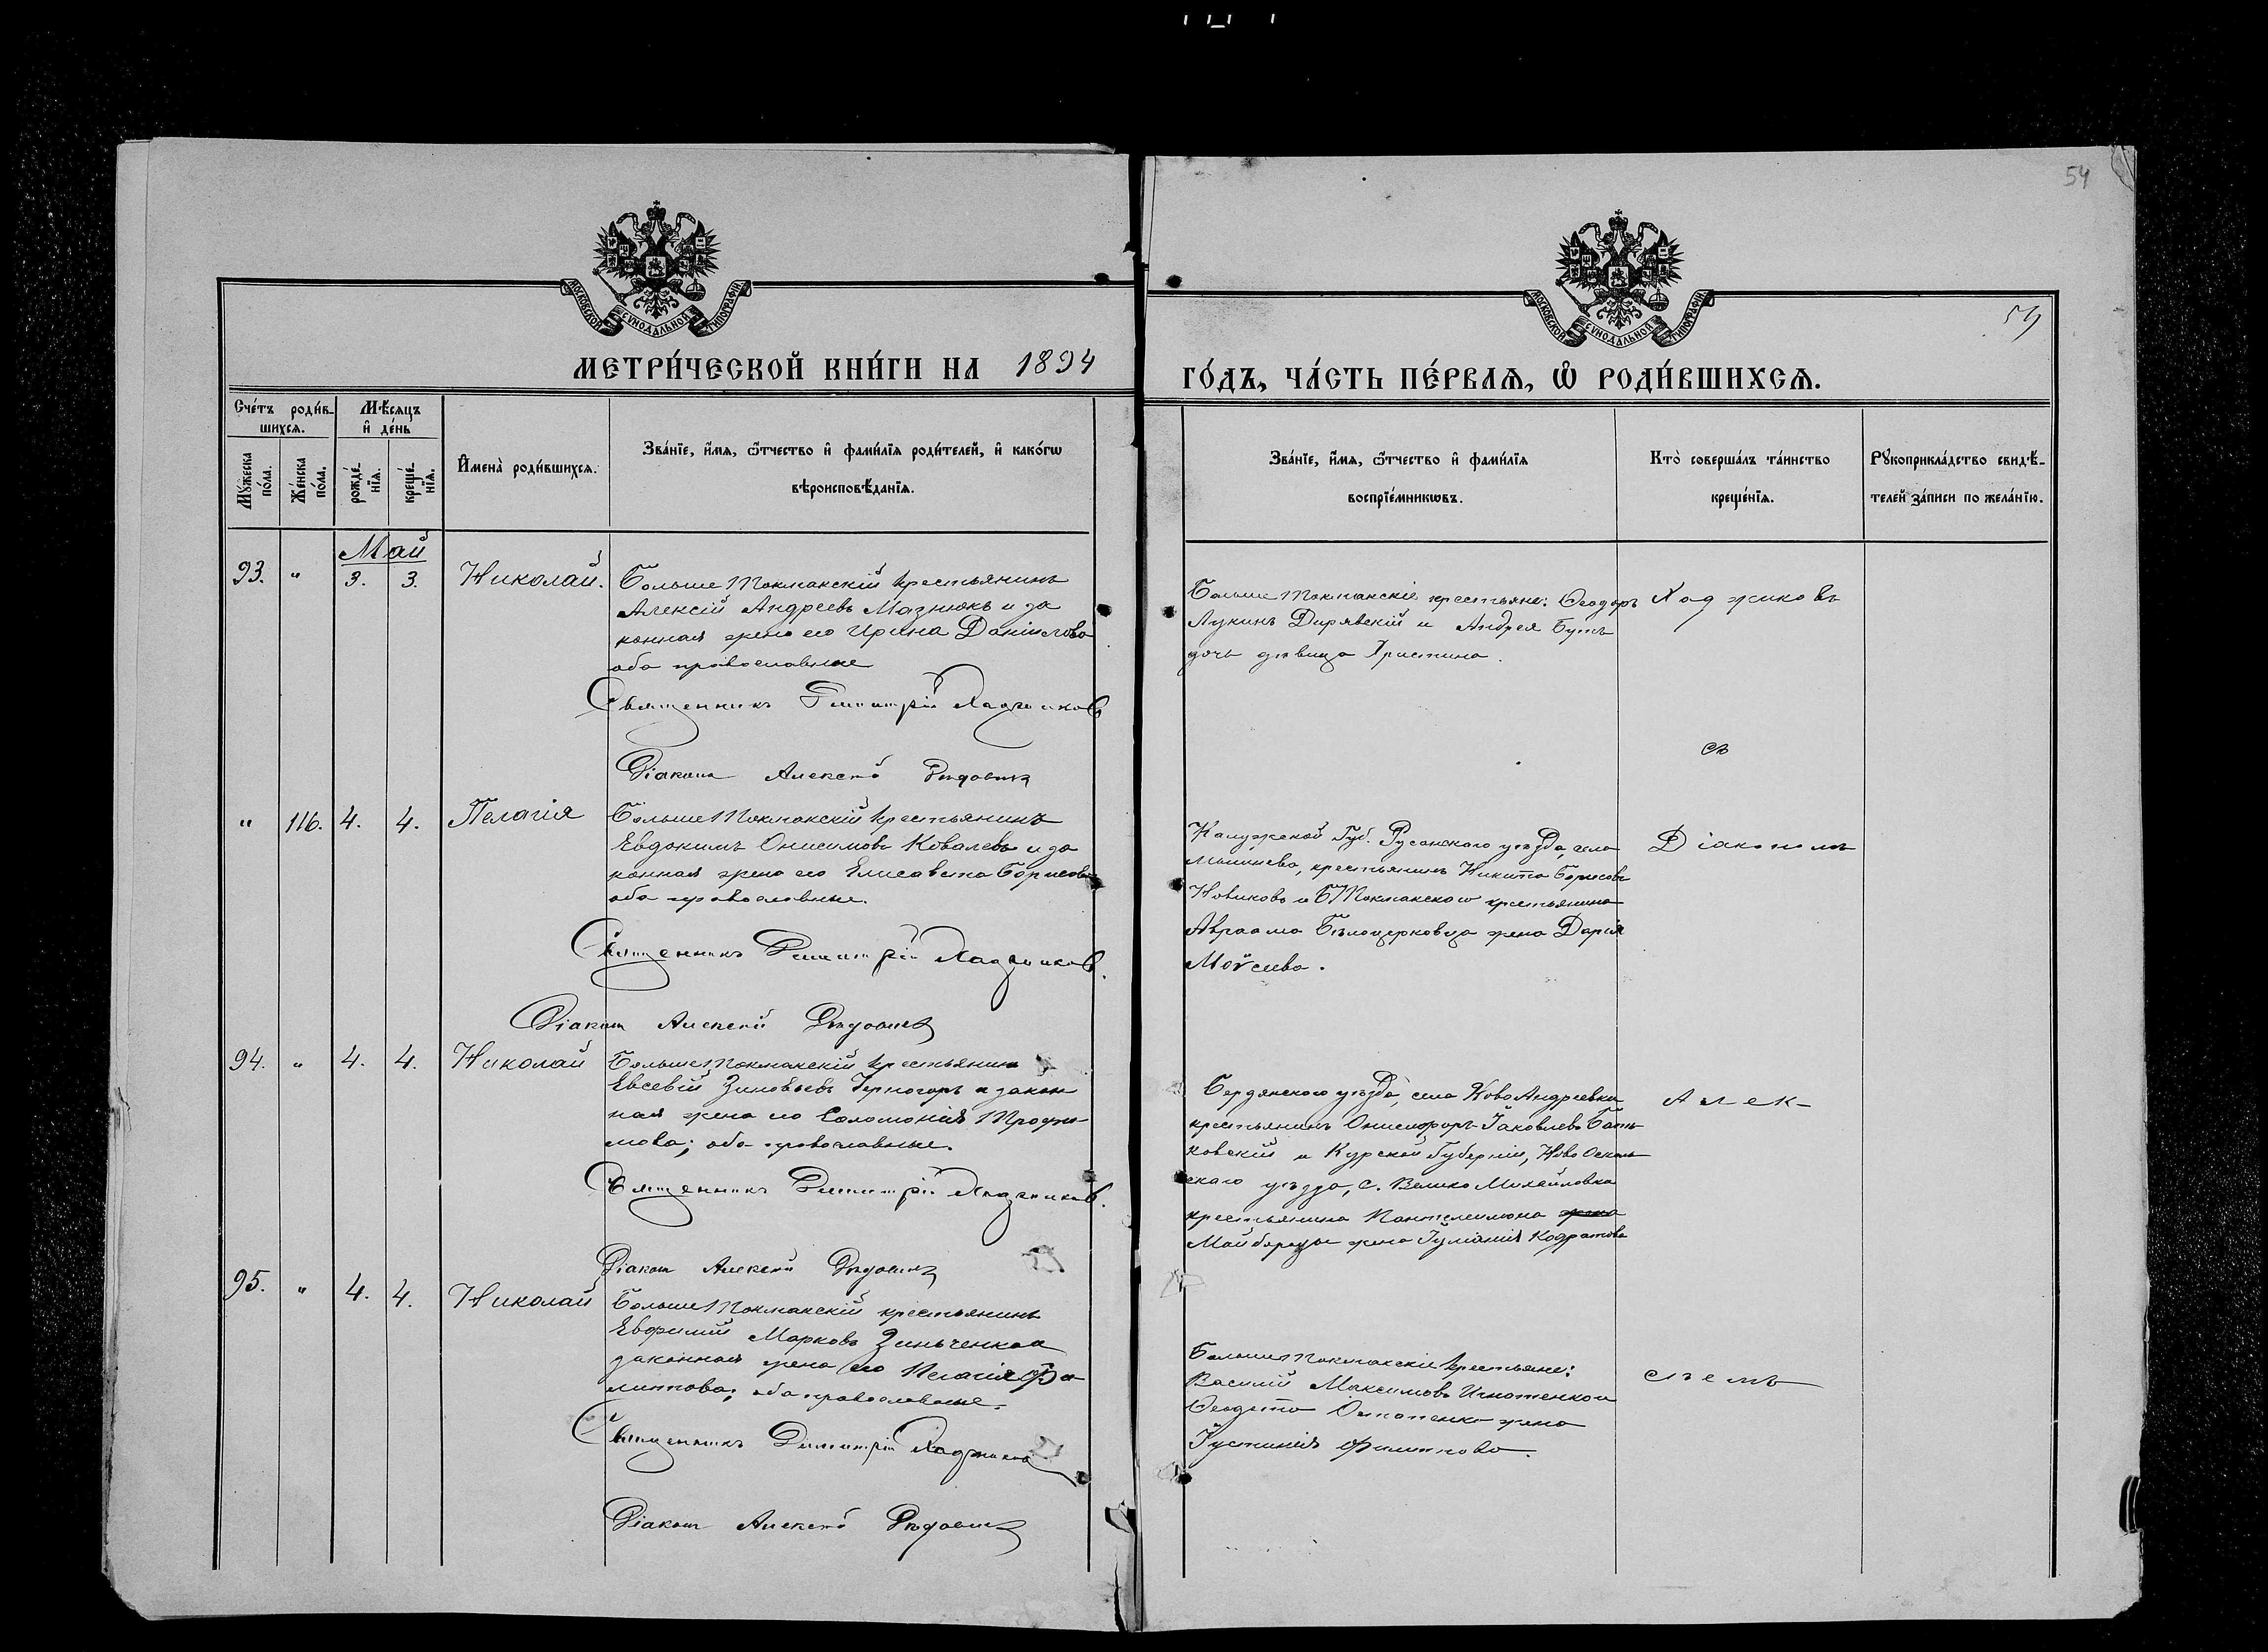 54
МОСКОВСКОЙ СѴНОДАЛЬНОЙ ТИПОГРАФІИ
МОСКОВСКОЙ СѴНОДАЛЬНОЙ ТИПОГРАФІИ
МЕТРИ́ЧЕСКОЙ КНИ́ГИ НА 1894
ГО́ДЪ, ЧА́СТЬ ПЕ́РВАѦ, Ѽ РОДИ́ВШИХСѦ.
Сче́тъ роди́вшихсѧ.
Мꙋ́жеска по́ла.
Же́нска по́ла.
Мѣ́сѧцъ и҆ де́нь
рожде́нїѧ.
креще́нїѧ.
И҆мена̀ роди́вшихсѧ.
Зва́нїе, и҆́мѧ, ѻ҆́тчество и҆ фами́лїѧ роди́телей, и҆ како́гѡ
вѣроисповѣ́данїѧ.
Зва́нїе, и҆́мѧ, ѻ҆́тчество и҆ фами́лїѧ
воспрїе́мникѡвъ.
Кто̀ соверша́лъ та́инство
креще́нїѧ.
Рꙋкоприкла́дство свидѣ́-
телей за́писи по жела́нїю.
Май
93. " 3. 3. Николай.
Больше Токмакскій крестьянинъ
Алексій Андреевъ Мазнюкъ и за
конная жена его Ирина Даніилова
оба православные
Священникъ Димитрій Хаджиковъ
Діаконъ Алексѣй
Больше Токмакскіе крестьяне: Ѳеодоръ
Лукинъ Дирявскій и Андрея Бутъ
дочь дѣвица Христина.
Хаджиковъ
съ
" 116. 4. 4. Пелагія
Больше Токмакскій крестьянинъ
Евдокимъ Онисимовъ Ковалевъ и за
конная жена его Елисавета Борисова
оба православные.
Священникъ Димитрій Хаджиковъ.
Діаконъ Алексѣй
Калужской Губ. уѣзда, села
крестьянинъ Никита Борисовъ
Новиковъ и Б Токмакского крестьянина
Авраама Бѣлоцерковца жена Дарія
Моѵсеева.
Діакономъ
94. " 4. 4. Николай
Больше Токмакскій крестьянинъ
Евсевій Зиновьевъ Черногоръ и закон
ная жена его Соломонія Трофи-
мова; оба православные.
Священникъ Димитрій Хаджиковъ.
Діаконъ Алексѣй
Бердянского уѣзда, села Ново Андреевки
крестьянинъ Онисифоръ Іаковлевъ Бать
ковскій и Курской Губерніи, Ново Осколь
ского уѣзда, с. Велико Михайловка
крестьянина Пантелеимона
Майбороды жена Іуліанія Кодратова
Алек-
95. " 4. 4. Николай
Больше Токмакскій крестьянинъ
Евфимій Марковъ Зинченко и
законная жена его Пелагія Фи
липпова; оба православные.
Священникъ Димитрій Хаджиковъ
Діаконъ Алексѣй
Больше Токмакскіе крестьяне:
Василій Максимовъ Игнатенко и
Ѳеодота Остапенко жена
Іустинія Филиппова.
сѣемъ